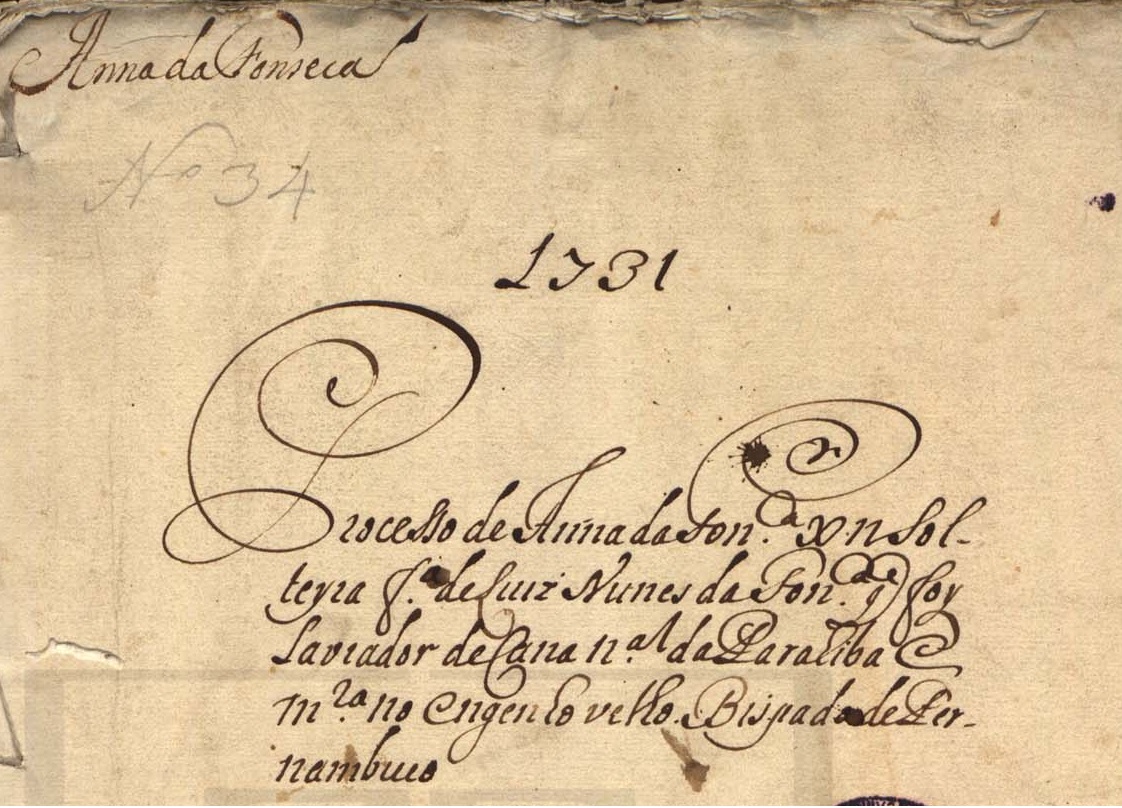 Anna da Fonseca
No 34
1731
Processo de Anna da Fon.ca xn sol-
teyra f.a de Luiz Nunes da Fon.ca q foy
lavrador de Cana n.al da Paraiba e
m.ra no engenho velho. Bispado de Per-
nambuco